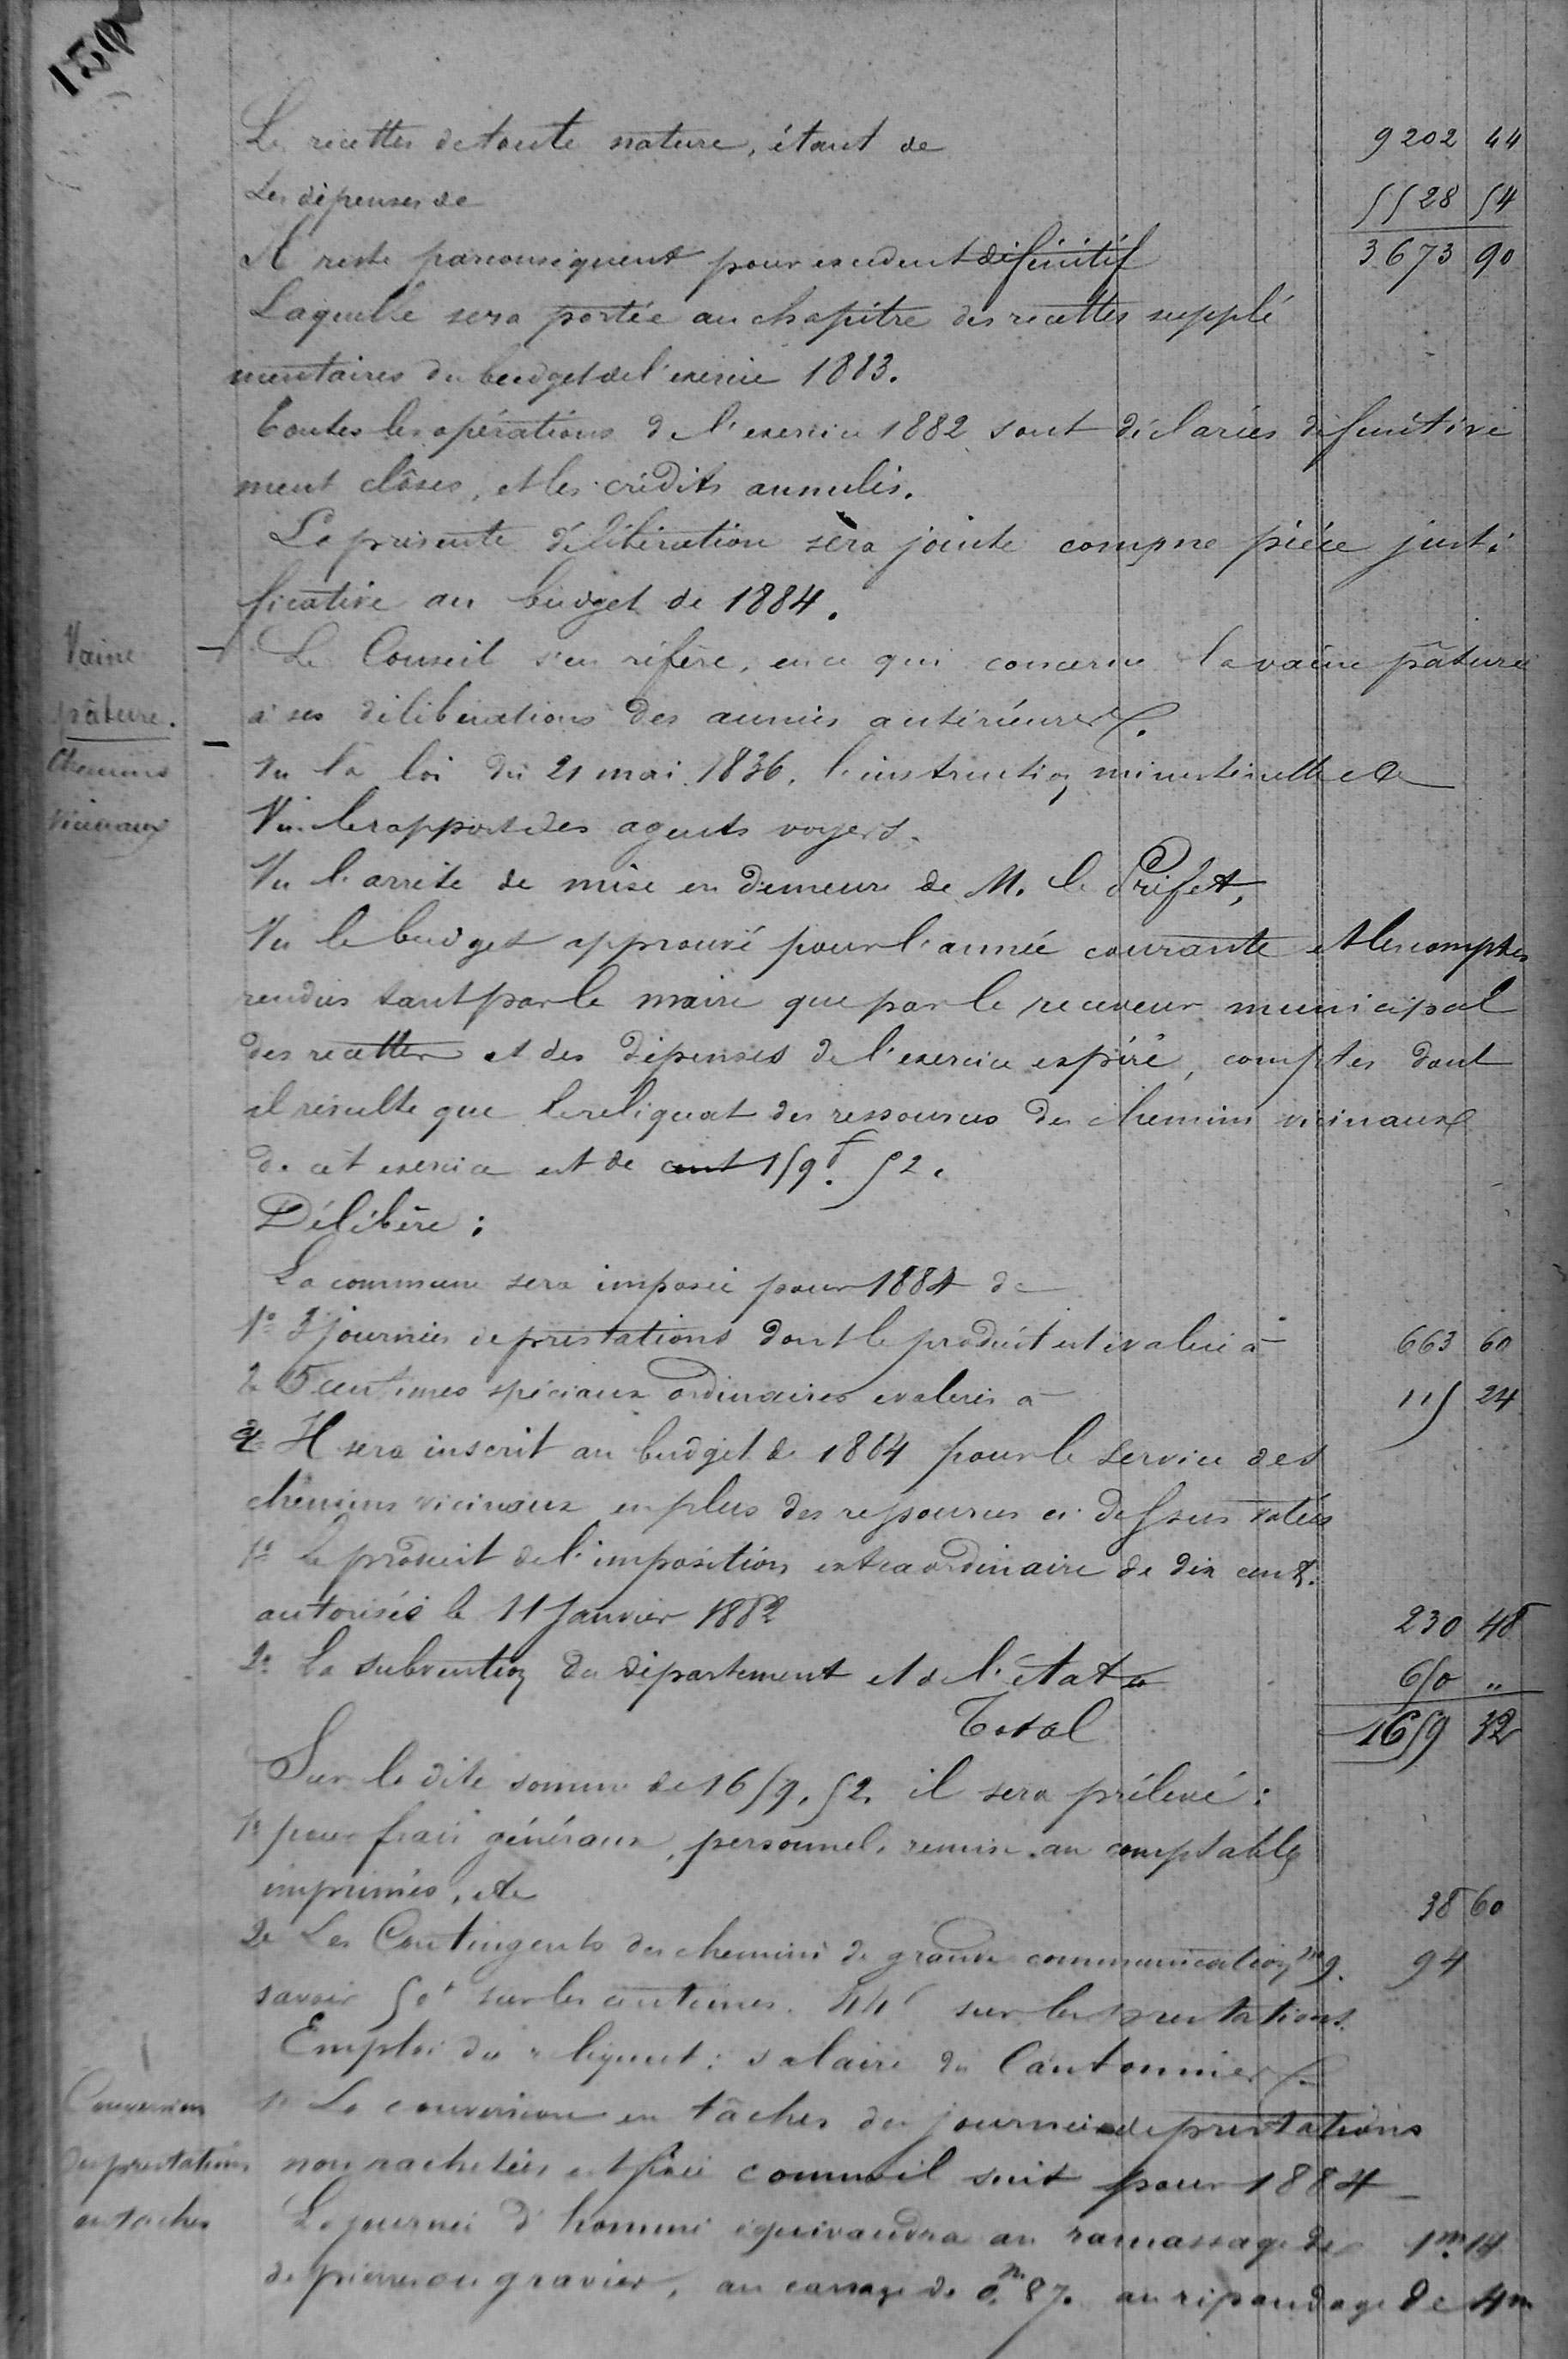 159
Les recettes de toute nature, étant de 9202 44
Les dépenses de 5528 54
Il reste parconséquent pour excédent définitif 3673 90
Laquelle sera portée au chapitre des recettes supplé
mentaires du budget de l'exercice 1883.
Toutes les opérations de l'exercice 1882 sont déclarées définitive
ment clôses, et les crédits annulés.
La présente délibération sera jointe comme pièce justi
ficative au budget de 1884.
Vaine
pâture.
Le Conseil s'en réfère, en ce qui concerne la vaine pâture
à ses délibérations des années antérieures.
Chemins
vicinaux
Vu la loi du 21 mai 1836, l'instruction ministérielle &
Vu les rapports des agents voyers.
Vu l'arrêté de mise en demeure de M. le Préfet,
Vu le budget approuvé pour l'année courante et les comptes
rendus tant par le maire que par le receveur municipal
des recettes et des dépenses de l'exercice expiré, comptes dont
il résulte que le reliquat des ressources des chemins vicinaux
de cet exercice est de cent 159f. 52.
Délibère :
La commune sera imposée pour 1884 de
1° 3 journées de prestations dont le produit est évalué à 663 60
2° 5 centimes spéciaux ordinaires évalués à 115 24
Il sera inscrit au budget de 1884 pour le service des
chemins vicinaux en plus des ressources ci dessus votées
1° le produit de l'imposition extraordinaire de dix cent.
autorisée le 11 Janvier 1882 230 48
2° La subvention du département et de l'état 650 "
Total 1659 32
Sur la dite somme de 1659, 52. il sera prélevé :
1° pour frais généraux, personnel, remise au comptable
imprimés, etc 38 60
2° Les Contingents des chemins de grande communication n° 9. 94
savoir 50f sur les centimes. 44f sur les prestations.
Emploi du reliquat : salaire du Cantonnier.
Conversion
des prestations
en tâches
1° La conversion en tâches des journées de prestations
non rachetées est fixée comme il suit pour 1884
La journée d'homme équivaudra au ramassage de 1m.14
de pierres ou gravier, au cassage de 0m,87. au répandage de 4m